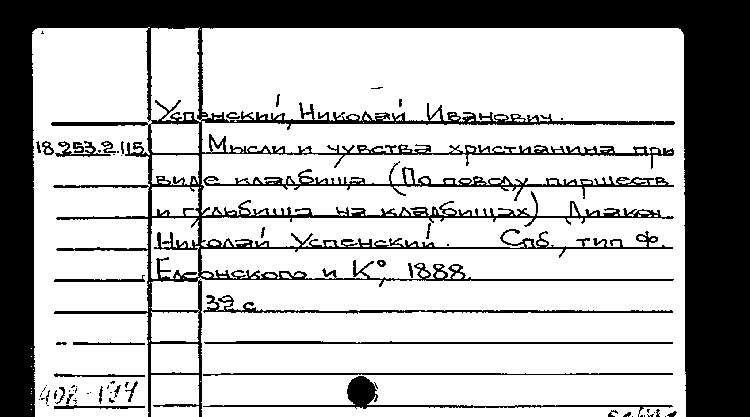 Успенский, Николай Иванович.
18.253.2.115 Мысли и чувства христианина при
виде кладбища. (По поводу пиршеств
и гульбища на кладбищах) Диакон
Николай Успенский. Спб., тип Ф.
Елеонского и К°, 1888.
39 с.
408-194